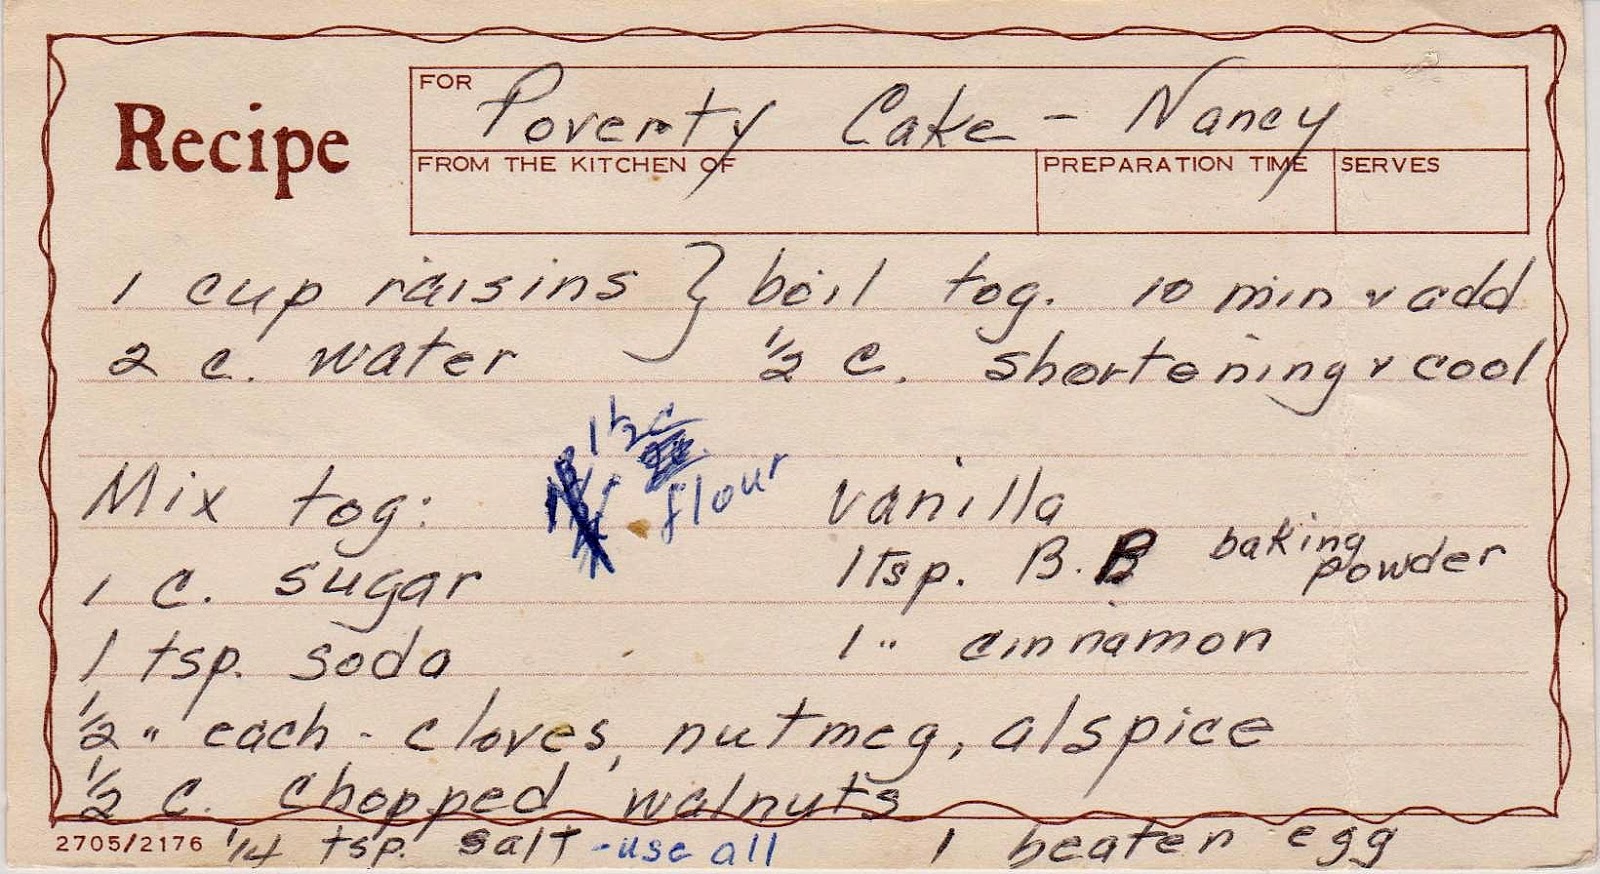 Recipe
FOR Poverty Cake - Nancy
FROM THE KITCHEN OF PREPARATION TIME SERVES
1 cup raisins } boil tog. 10 min & add
2 c. water ½ c. shortening & cool
1½ c
flour
Mix tog: vanilla
1 c. sugar 1 tsp. B. B baking powder
1 tsp. soda 1 " cinnamon
½ " each - cloves, nutmeg, alspice
½ c. chopped walnuts
2705/2176 ¼ tsp. salt - use all 1 beaten egg